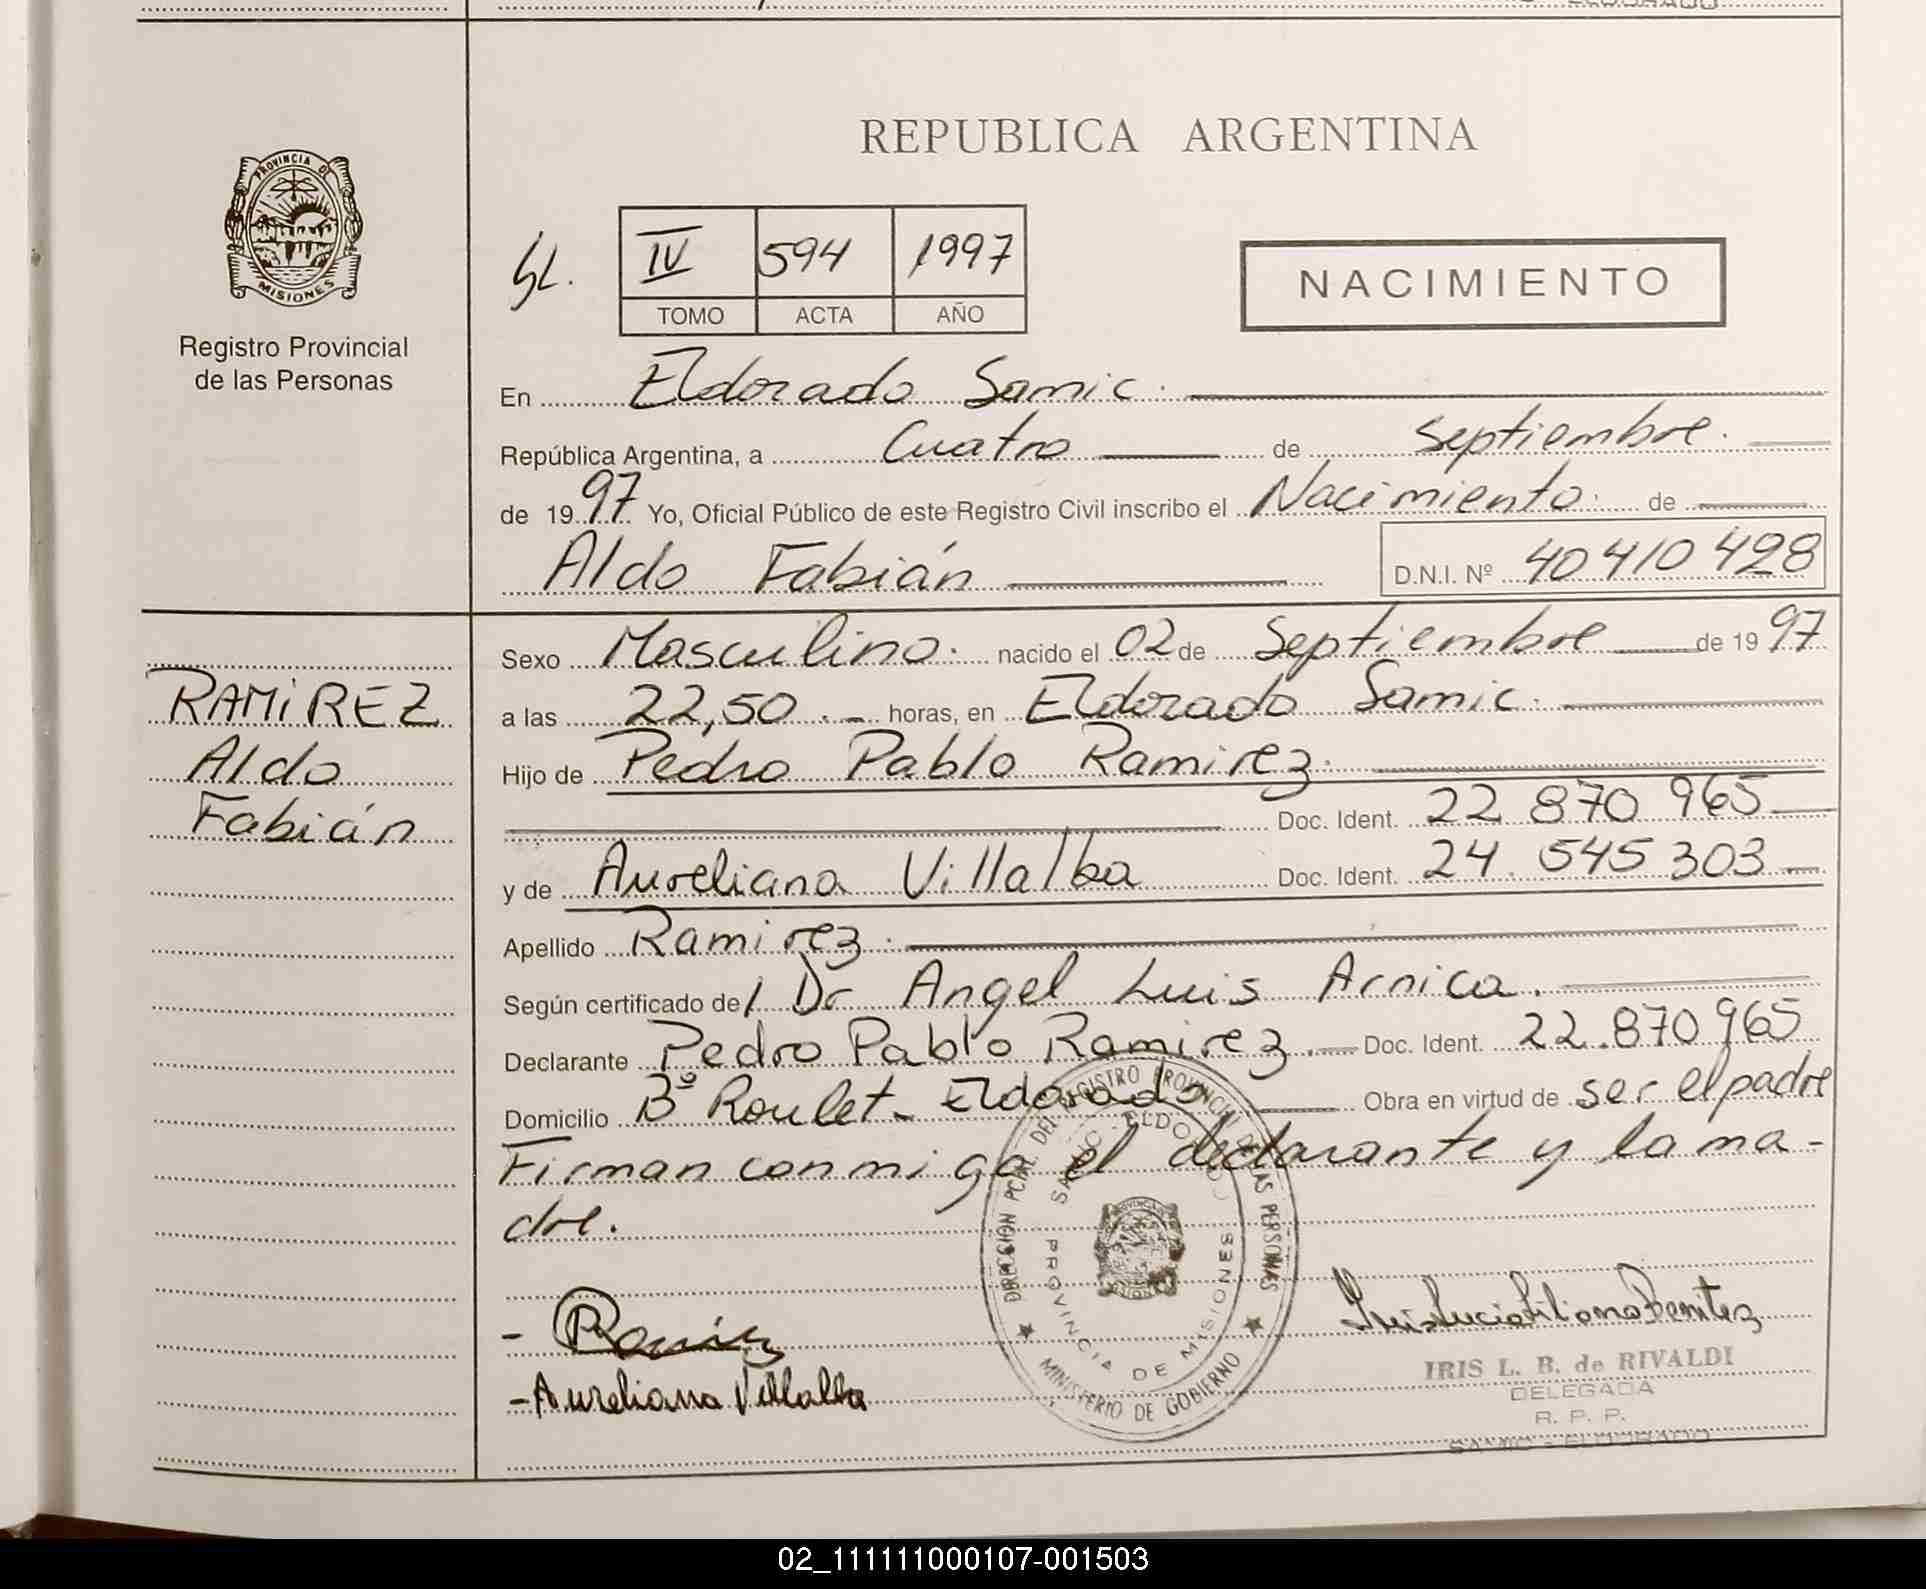 REPUBLICA ARGENTINA
PROVINCIA DE
MISIONES
Registro Provincial
de las Personas
IV 594 1997
TOMO ACTA AÑO
NACIMIENTO
En Eldorado Samic.
República Argentina, a Cuatro de Septiembre.
de 1997 Yo, Oficial Público de este Registro Civil inscribo el Nacimiento. de
Aldo Fabián D.N.I. Nº 40410428
RAMIREZ
Aldo
Fabián
Sexo Masculino. nacido el 02 de Septiembre de 1997
a las 22,50.- horas, en Eldorado Samic.
Hijo de Pedro Pablo Ramirez.
Doc. Ident. 22 870 965
y de Aureliana Villalba Doc. Ident. 24.545 303
Apellido Ramirez.
Según certificado del Dr Angel Luis Arnica.
Declarante Pedro Pablo Ramirez.- Doc. Ident. 22.870965
Domicilio Bº Roulet- Eldorado Obra en virtud de ser el padre
Firman conmigo el declarante y la ma-
dre.
DIRECCIÓN PCIAL. DEL REGISTRO PROVINCIAL DE LAS PERSONAS
MINISTERIO DE GOBIERNO
SAMIC - ELDORADO
PROVINCIA DE MISIONES
- Ramirez
- Aureliana Villalba
IRIS L. B. de RIVALDI
DELEGADA
R. P. P.
SAMIC - ELDORADO
02_111111000107-001503